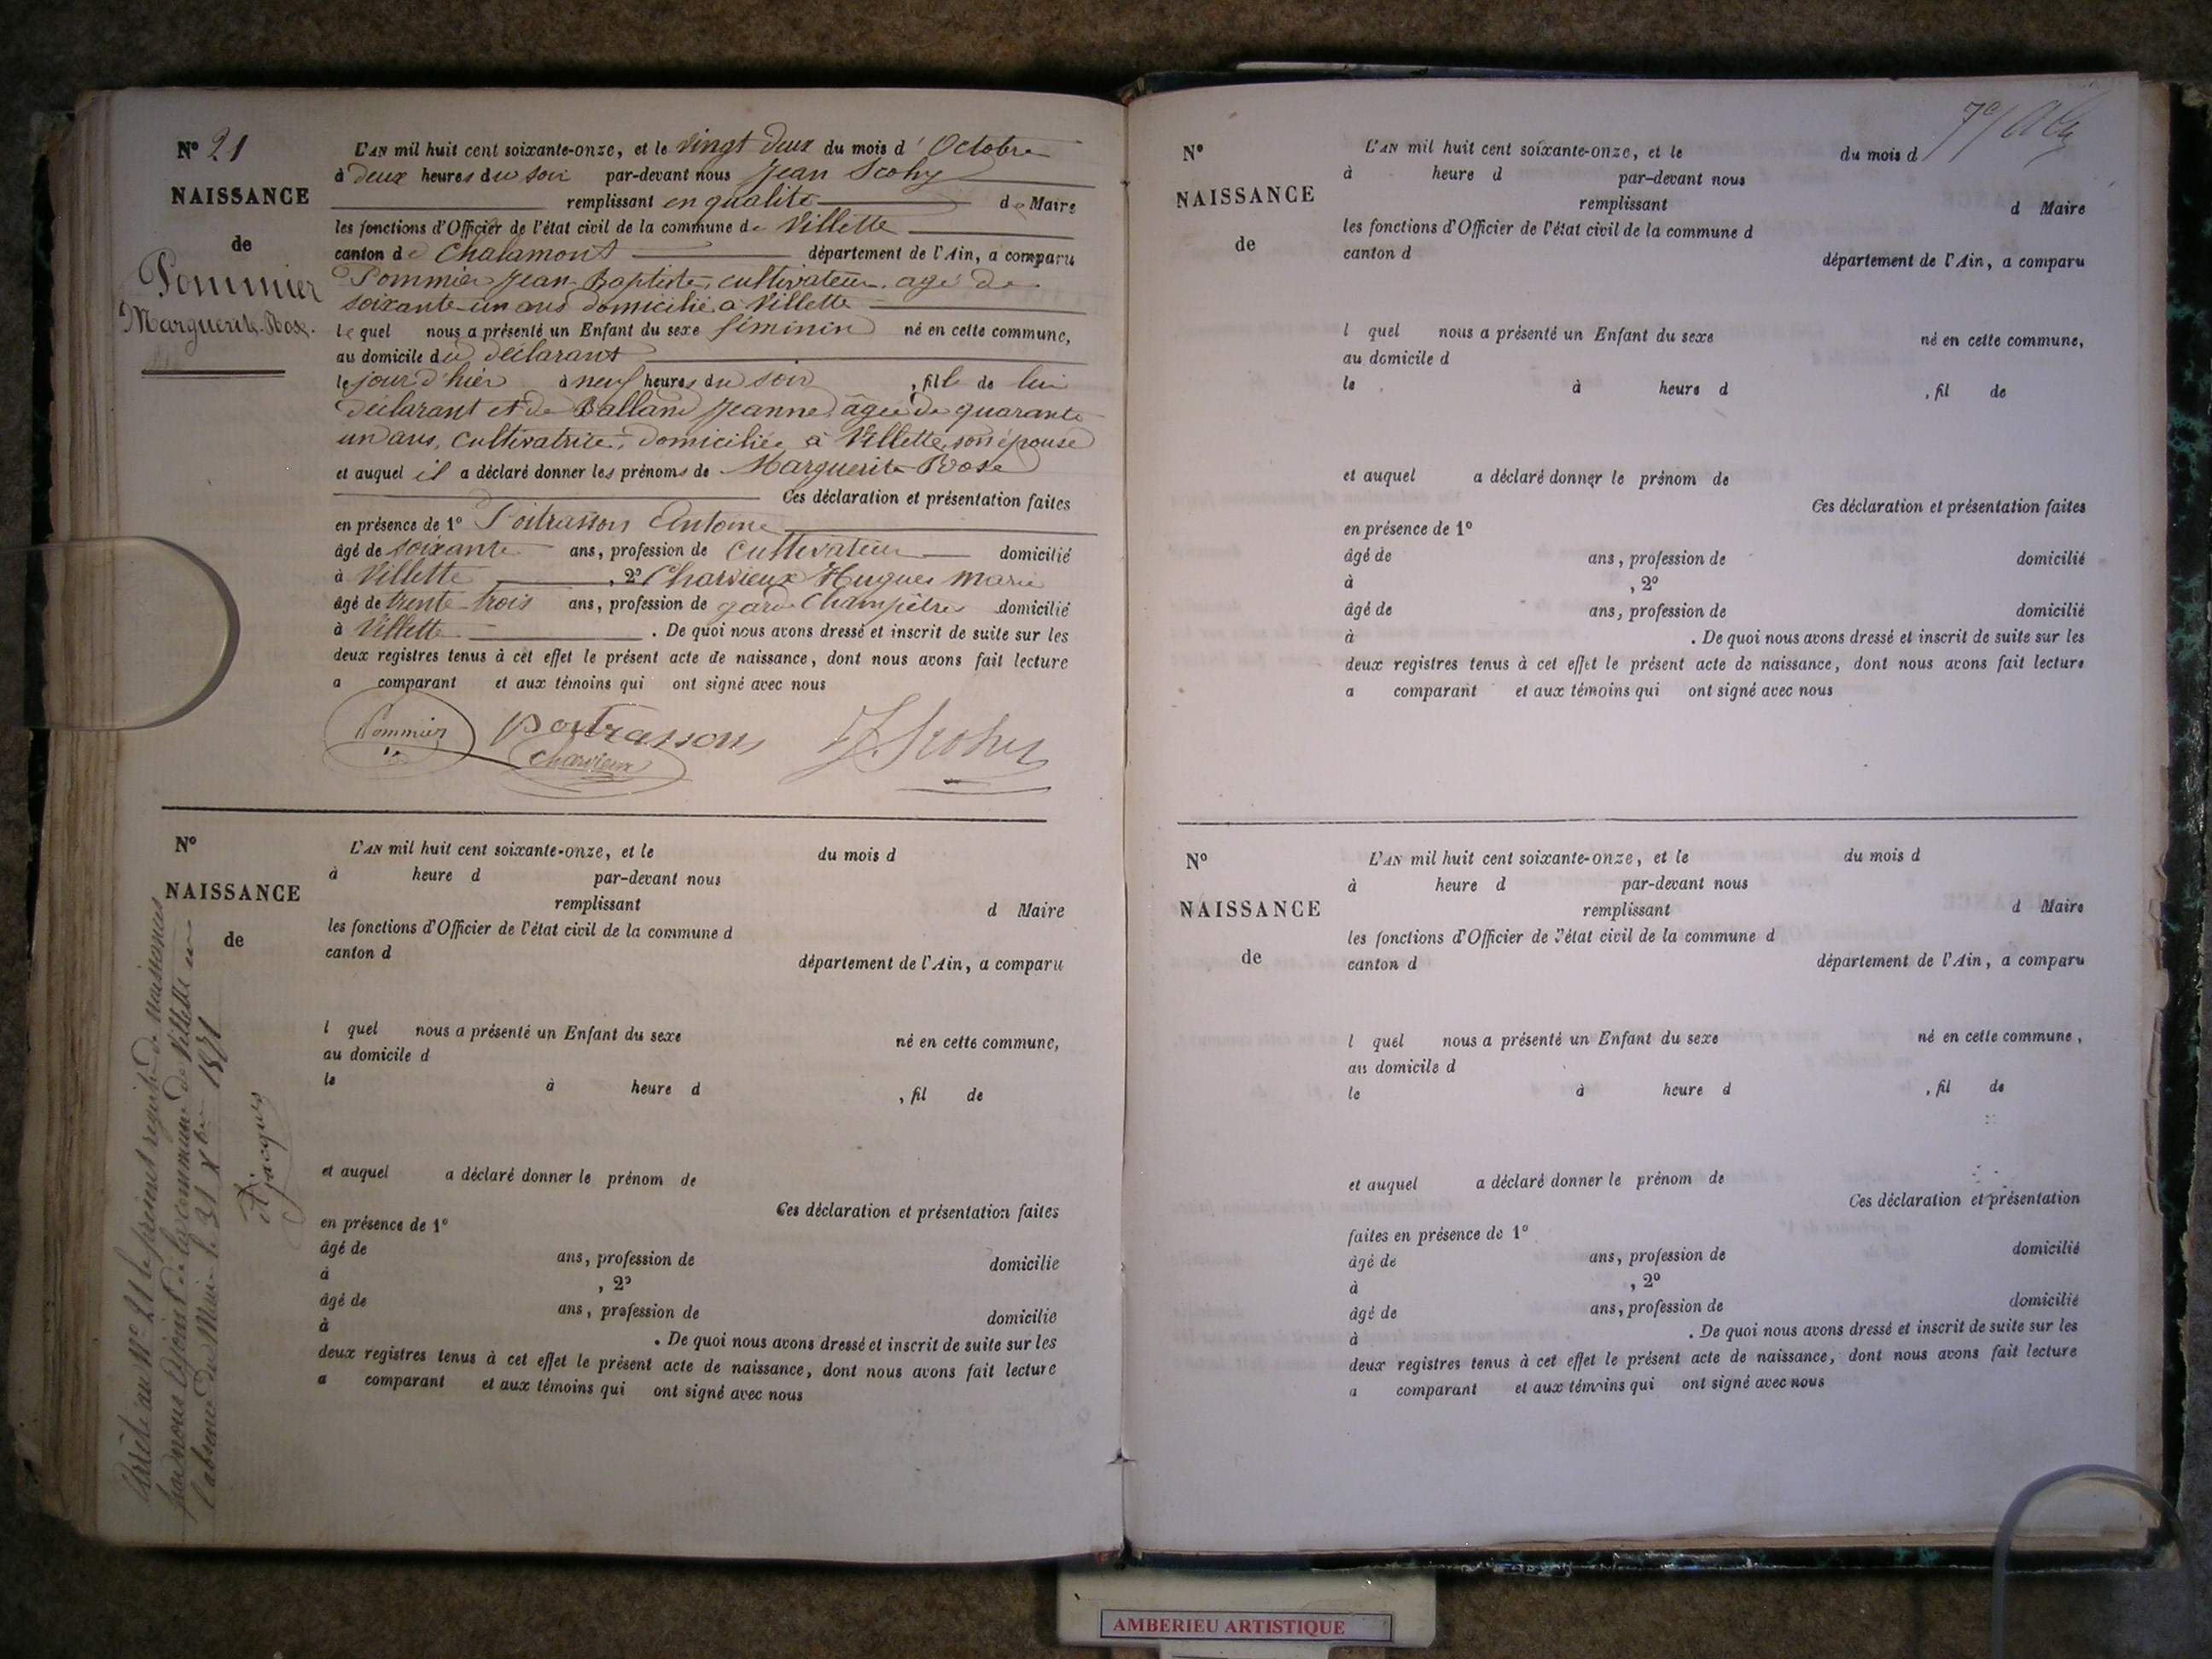 N° 21
NAISSANCE
de
Pommier
Marguerite-Rose.
L'AN mil huit cent soixante-onze, et le vingt deux du mois d'Octobre
à deux heures du soir par-devant nous Jean Scohy
remplissant en qualité de Maire
les fonctions d'Officier de l'état civil de la commune de Villette
canton de Chalamont département de l'Ain, a comparu
Pommier Jean-Baptiste, cultivateur, agé de
soixante-un ans domicilié à Villette
lequel nous a présenté un Enfant du sexe féminin né en cette commune,
au domicile du déclarant
le jour d'hier à neuf heures du soir, fille de lui
déclarant et de Balland Jeanne, âgée de quarante
un ans, cultivatrice, domiciliée à Villette, son épouse
et auquel il a déclaré donner les prénoms de Marguerite-Rose
Ces déclaration et présentation faites
en présence de 1° Poitrasson Antoine
âgé de soixante ans, profession de cultivateur domicilié
à Villette, 2° Charvieux Hugues Marie
âgé de trente-trois ans, profession de garde Champêtre domicilié
à Villette. De quoi nous avons dressé et inscrit de suite sur les
deux registres tenus à cet effet le présent acte de naissance, dont nous avons fait lecture
a comparant et aux témoins qui ont signé avec nous
Pommier poitrasson J. Scohy
Charvieux
N°
NAISSANCE
de
L'AN mil huit cent soixante-onze, et le du mois d
à heure d par-devant nous
remplissant d Maire
les fonctions d'Officier de l'état civil de la commune d
canton d département de l'Ain, a comparu
l quel nous a présenté un Enfant du sexe né en cette commune,
au domicile d
le à heure d , fil de
et auquel a déclaré donner le prénom de
Ces déclaration et présentation faites
en présence de 1°
âgé de ans, profession de domicilié
à , 2°
âgé de ans, profession de domicilié
à . De quoi nous avons dressé et inscrit de suite sur les
deux registres tenus à cet effet le présent acte de naissance, dont nous avons fait lecture
a comparant et aux témoins qui ont signé avec nous
Arrêté au N° 21 le présent registre de naissances
par nous adjoint de la commune de Villette en
l'absence du Maire le 31 Xbre 1871
Jacques
N°
NAISSANCE
de
L'AN mil huit cent soixante-onze, et le du mois d
à heure d par-devant nous
remplissant d Maire
les fonctions d'Officier de l'état civil de la commune d
canton d département de l'Ain, a comparu
l quel nous a présenté un Enfant du sexe né en cette commune,
au domicile d
le à heure d , fil de
et auquel a déclaré donner le prénom de
Ces déclaration et présentation faites
en présence de 1°
âgé de ans, profession de domicilié
à , 2°
âgé de ans, profession de domicilié
à . De quoi nous avons dressé et inscrit de suite sur les
deux registres tenus à cet effet le présent acte de naissance, dont nous avons fait lecture
a comparant et aux témoins qui ont signé avec nous
N°
NAISSANCE
de
L'AN mil huit cent soixante-onze, et le du mois d
à heure d par-devant nous
remplissant d Maire
les fonctions d'Officier de l'état civil de la commune d
canton d département de l'Ain, a comparu
l quel nous a présenté un Enfant du sexe né en cette commune,
au domicile d
le à heure d , fil de
et auquel a déclaré donner le prénom de
Ces déclaration et présentation
faites en présence de 1°
âgé de ans, profession de domicilié
à , 2°
âgé de ans, profession de domicilié
à . De quoi nous avons dressé et inscrit de suite sur les
deux registres tenus à cet effet le présent acte de naissance, dont nous avons fait lecture
a comparant et aux témoins qui ont signé avec nous
AMBERIEU ARTISTIQUE